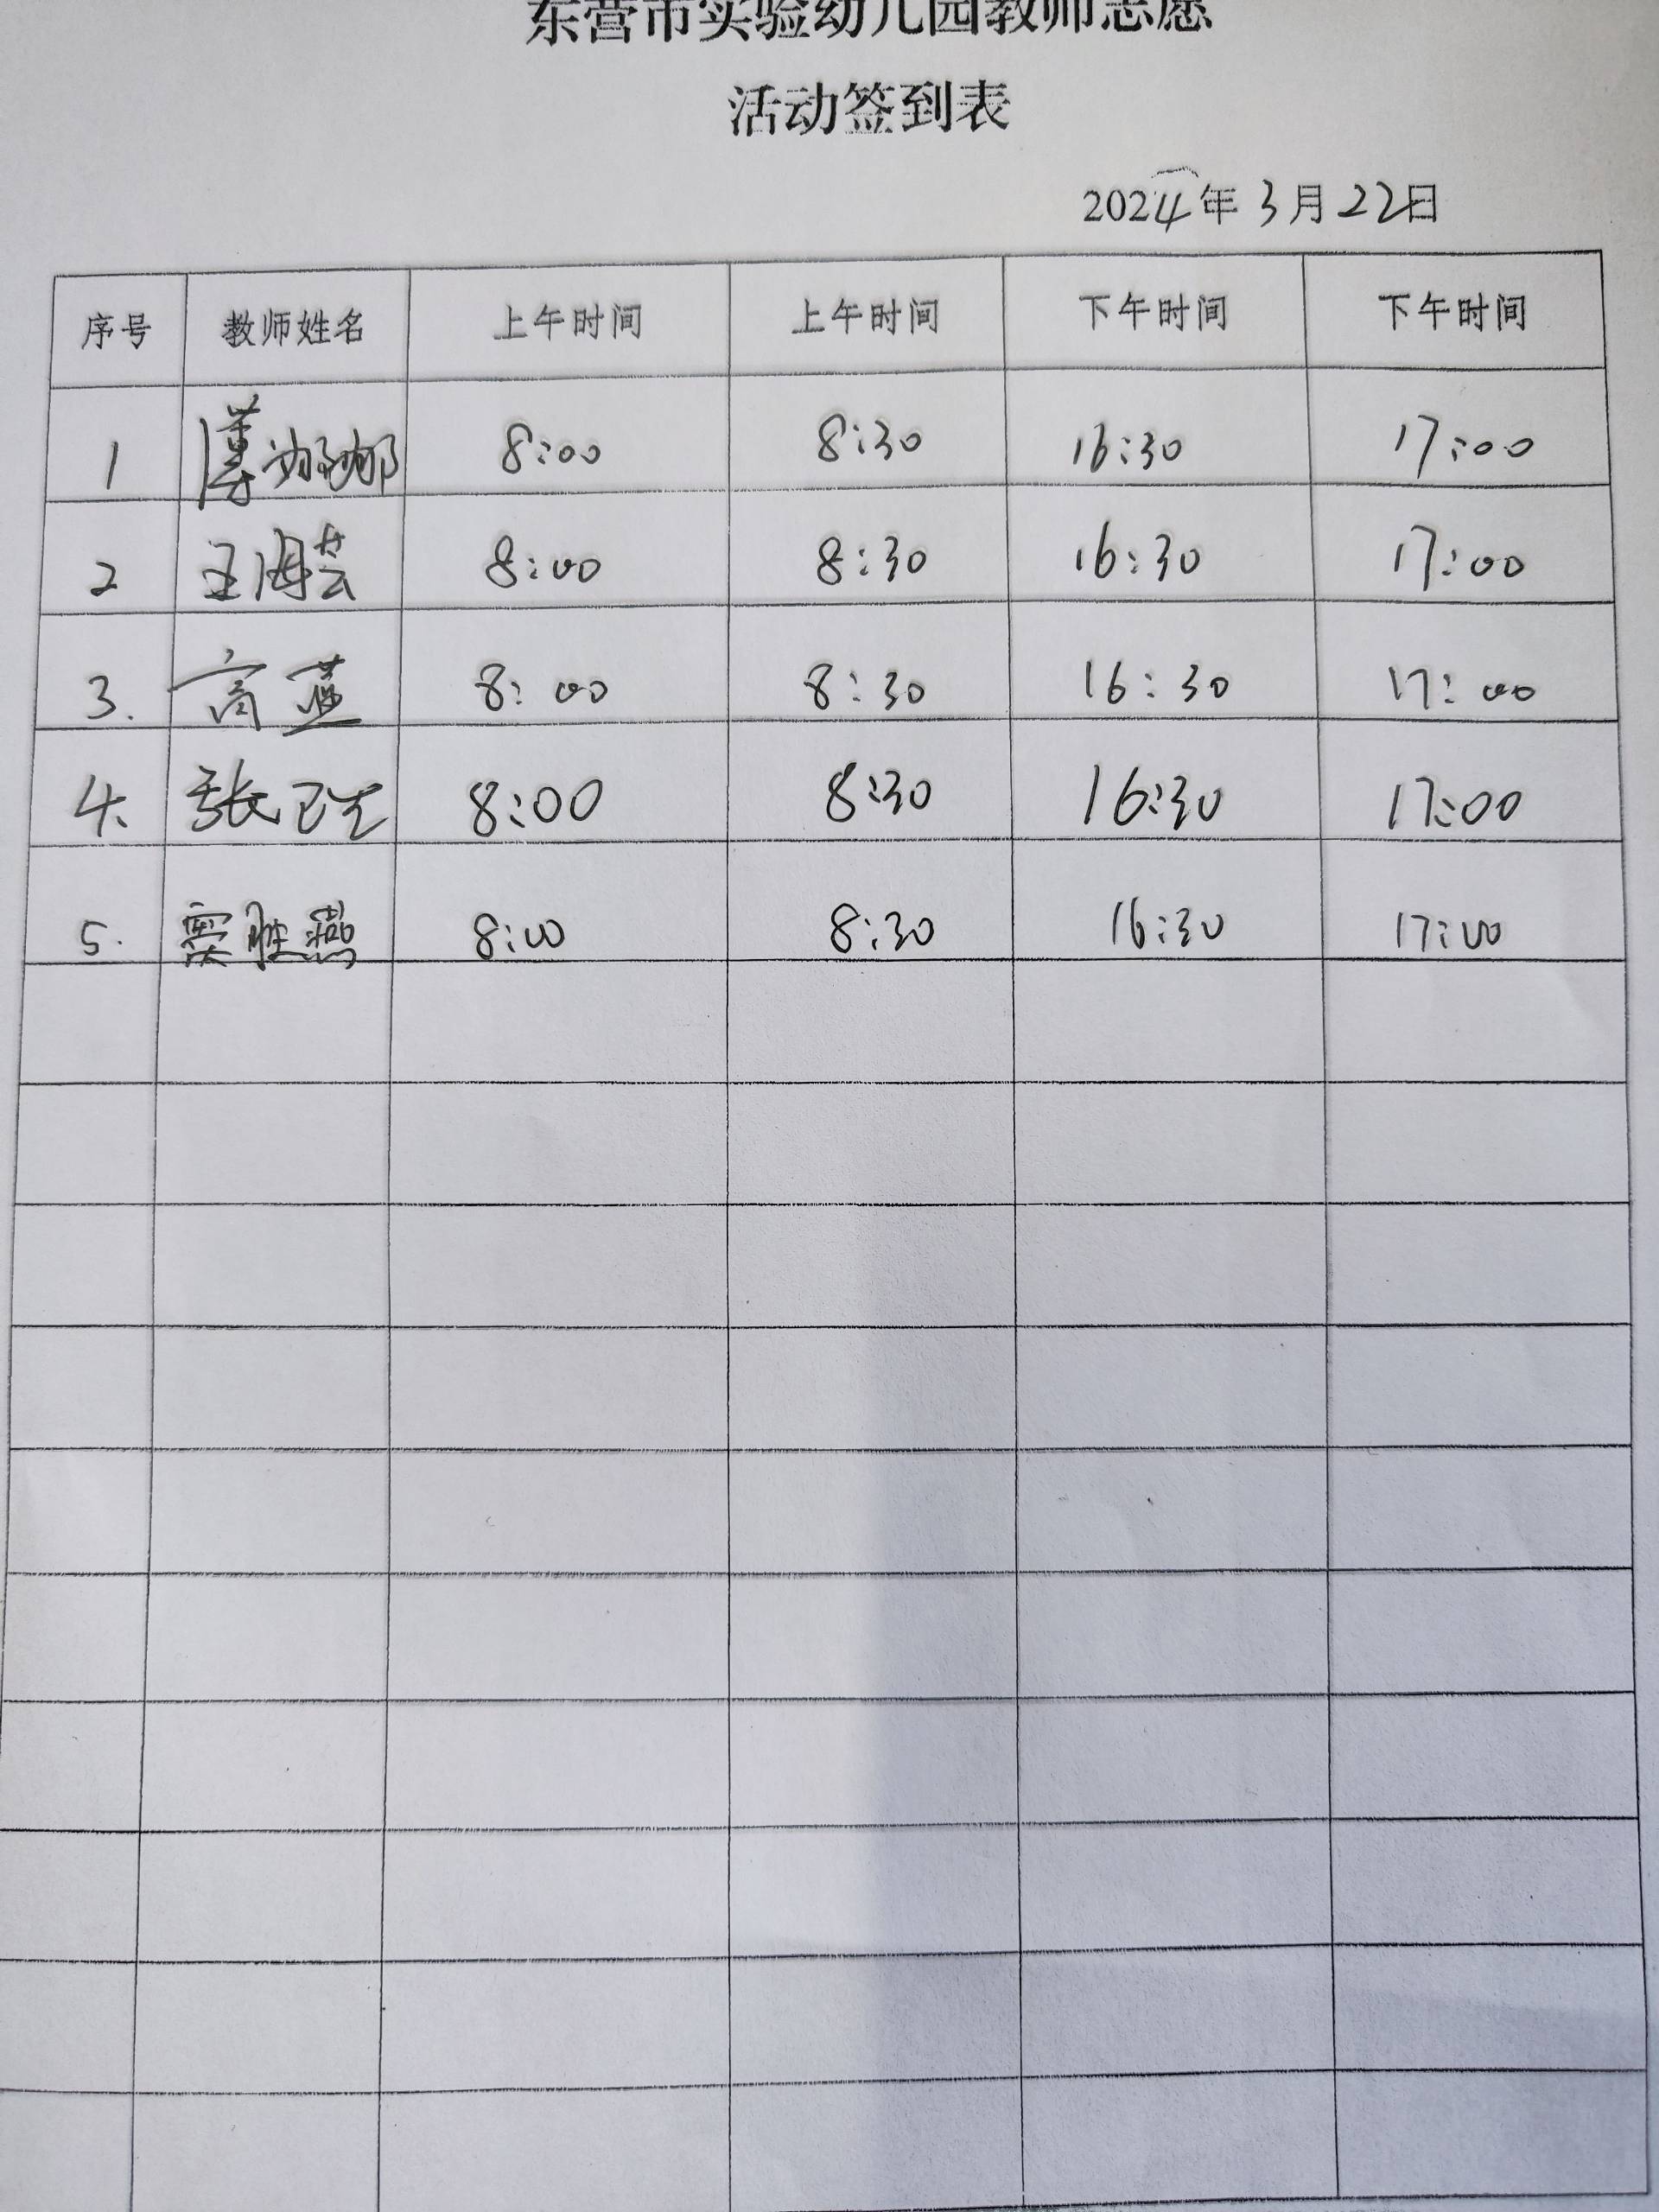 东营市实验幼儿园教师志愿
活动签到表
2024年3月22日
序号 教师姓名 上午时间 上午时间 下午时间 下午时间
1 8:00 8:30 16:30 17:00
2 王海芸 8:00 8:30 16:30 17:00
3. 高蓝 8:00 8:30 16:30 17:00
4. 张 8:00 8:30 16:30 17:00
5. 窦胜燕 8:00 8:30 16:30 17:00